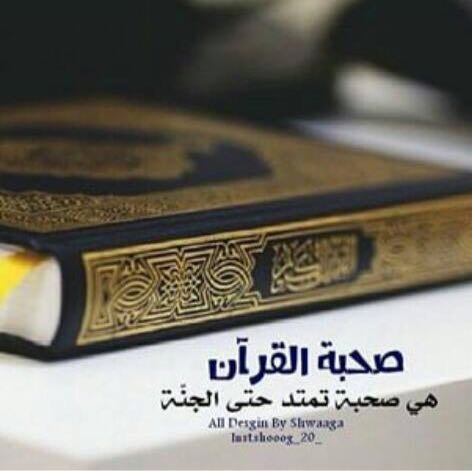 القرآن الكريم
صحبة القرآن
هي صحبة تمتد حتى الجنّة
All Desgin By Shwaaga
Instshooog_20_